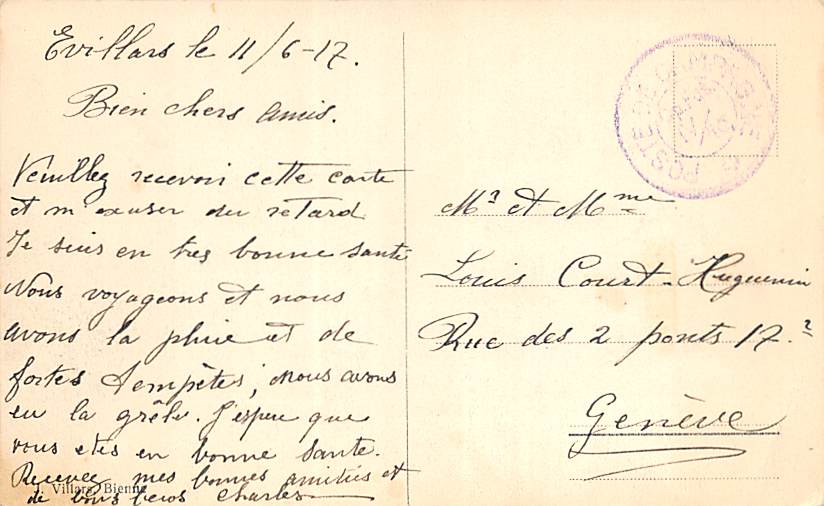 Evillars le 11/6-17.
Bien chers amis.
Veuillez recevoir cette carte
et m'exuser du retard
Je suis en tres bonne santé
Nous voyageons et nous
avons la pluie et de
fortes tempêtes, nous avons
eu la grêle. J'espere que
vous etes en bonne sante.
Recevez mes bonnes amitiés et
de bons becos Charles
J. Villars, Bienne
POSTE DE CAMPAGNE
Mr et Mme
Louis Court-Huguenin
Rue des 2 ponts 17.2
Genève